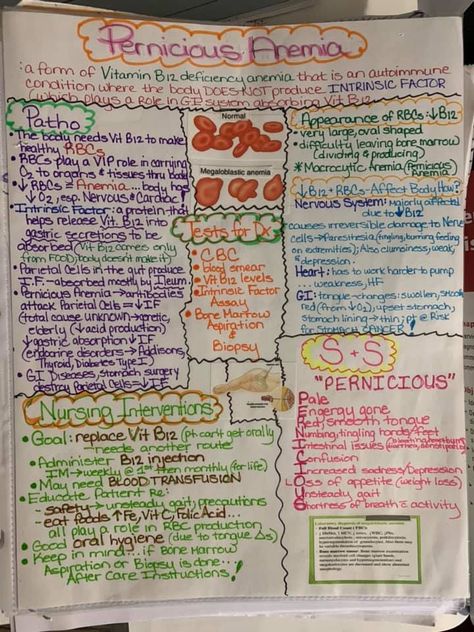 Pernicious Anemia
: a form of Vitamin B12 deficiency anemia that is an autoimmune
condition where the body DOES NOT produce INTRINSIC FACTOR
(which plays a role in GI system absorbing Vit B12
Patho
• The body needs Vit B12 to make
healthy RBCs
• RBCs play a VIP role in carrying
O2 to organs & tissues thru body
• ↓ RBCs = Anemia... body has
↓ O2, esp. Nervous & Cardiac!
• Intrinsic Factor: a protein that
helps release Vit B12 into
gastric secretions to be
absorbed (Vit B12 comes only
from FOOD; body doesn't make it)
• Parietal Cells in the gut produce
I.F. - absorbed mostly by Ileum.
• Pernicious Anemia → antibodies
attack Parietal Cells = ↓ IF
(total cause unknown → genetic,
elderly (↓ acid production)
↓ gastric absorption ↓ IF
(endocrine disorders → Addisons,
Thyroid, Diabetes Type I)
• GI Diseases, stomach surgery
destroy Parietal Cells = ↓ I.F.
Normal
Megaloblastic anemia
Tests for Dx
• CBC
• blood smear
• Vit B12 levels
• Intrinsic Factor
Assay
• Bone Marrow
Aspiration
&
Biopsy
Appearance of RBCs: ↓ B12
- very large, oval shaped
- difficulty leaving bone marrow
(dividing & producing)
* Macrocytic Anemia (Pernicious
Anemia)
↓ B12 + RBCs - Affect Body How?
Nervous System: Majorly affected
due to ↓ B12
causes irreversible damage to Nerve
cells → Parasthesia (tingling, burning feeling
on extremities); Also clumsiness, weak,
& depression.
Heart: has to work harder to pump
... weakness, HF
GI: tongue - changes: swollen, steak
red (from ↓ O2), upset stomach,
Stomach lining → thin; pt @ Risk
for STOMACH CANCER!
S + S
"PERNICIOUS"
Pale
Engergy gone
Red, smooth tongue
Numbing, tingling hands/feet
Intestinal issues (bloating, heartburn
diarrhea, constipation)
Confusion
Increased sadness/Depression
Loss of appetite (weight loss)
Unsteady gait
Shortness of breath č activity
Nursing Interventions
• Goal: replace Vit B12 (pt can't get orally
- needs another route
• Administer B12 injection
IM - weekly @ 1st then monthly (for life)
• May need BLOOD TRANSFUSION
• Educate Patient Re:
- safety → unsteady gait; precautions
- eat foods ↑ Fe, Vit C, Folic Acid...
all play a role in RBC production
• Good oral hygiene (due to tongue Δs)
• Keep in mind...if Bone Marrow
Aspiration or Biopsy is done...
After Care Instructions!